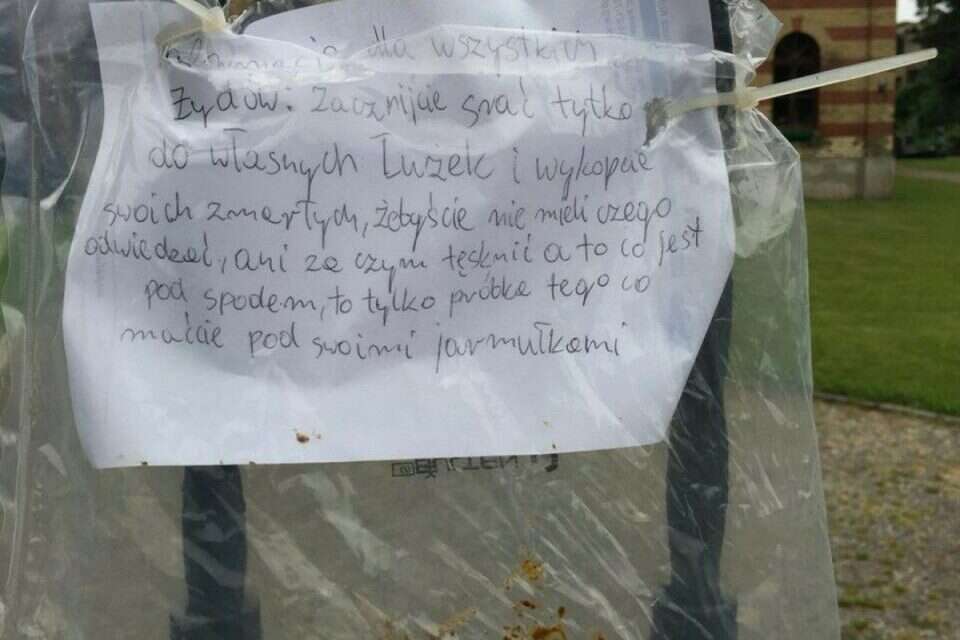 dla wszystkich
Żydów: Zacznijcie srać tylko
do własnych Łużek i wykopcie
swoich zmarłych, żebyście nie mieli czego
odwiedzać, ani za czym tęsknić a to co jest
pod spodem, to tylko próbka tego co
maćie pod swoimi jarmułkami